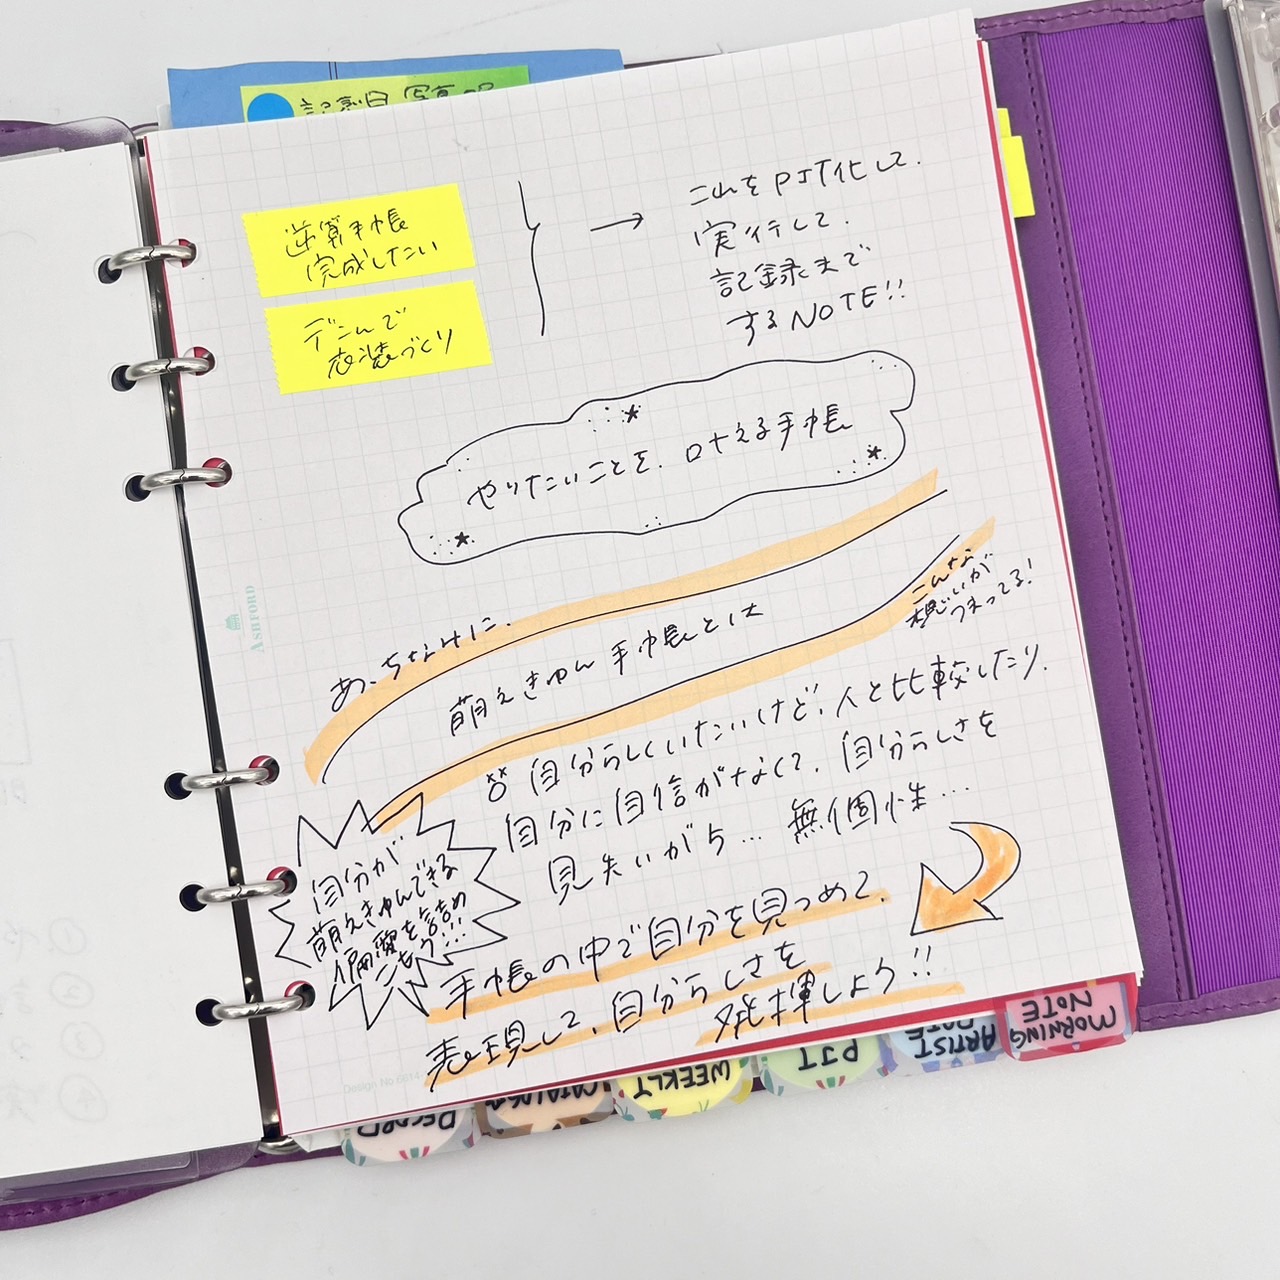 記念日 写真
逆算手帳
完成したい
デこんで
表装づくり
→ これをPJT化して、
実行して、
記録まで
するNOTE!!
やりたいことを、叶える手帳
あ、ちなみに、
萌えきゅん手帳とは
こんな
想いが
つまってる!
自分らしくいたいけど、人と比較したり、
自分に自信がなくて、自分らしさを
見失いがち… 無個性…
自分が
萌えきゅんできる
偏愛を詰め
こもう!!!
手帳の中で自分を見つめて、
表現して、自分らしさを
発揮しよう!!
ASHFORD
Design No 6614
RECORD
CATALOG
WEEKLY
PJT
ARTIST
DATE
MORNING
NOTE
①や
②
③
④